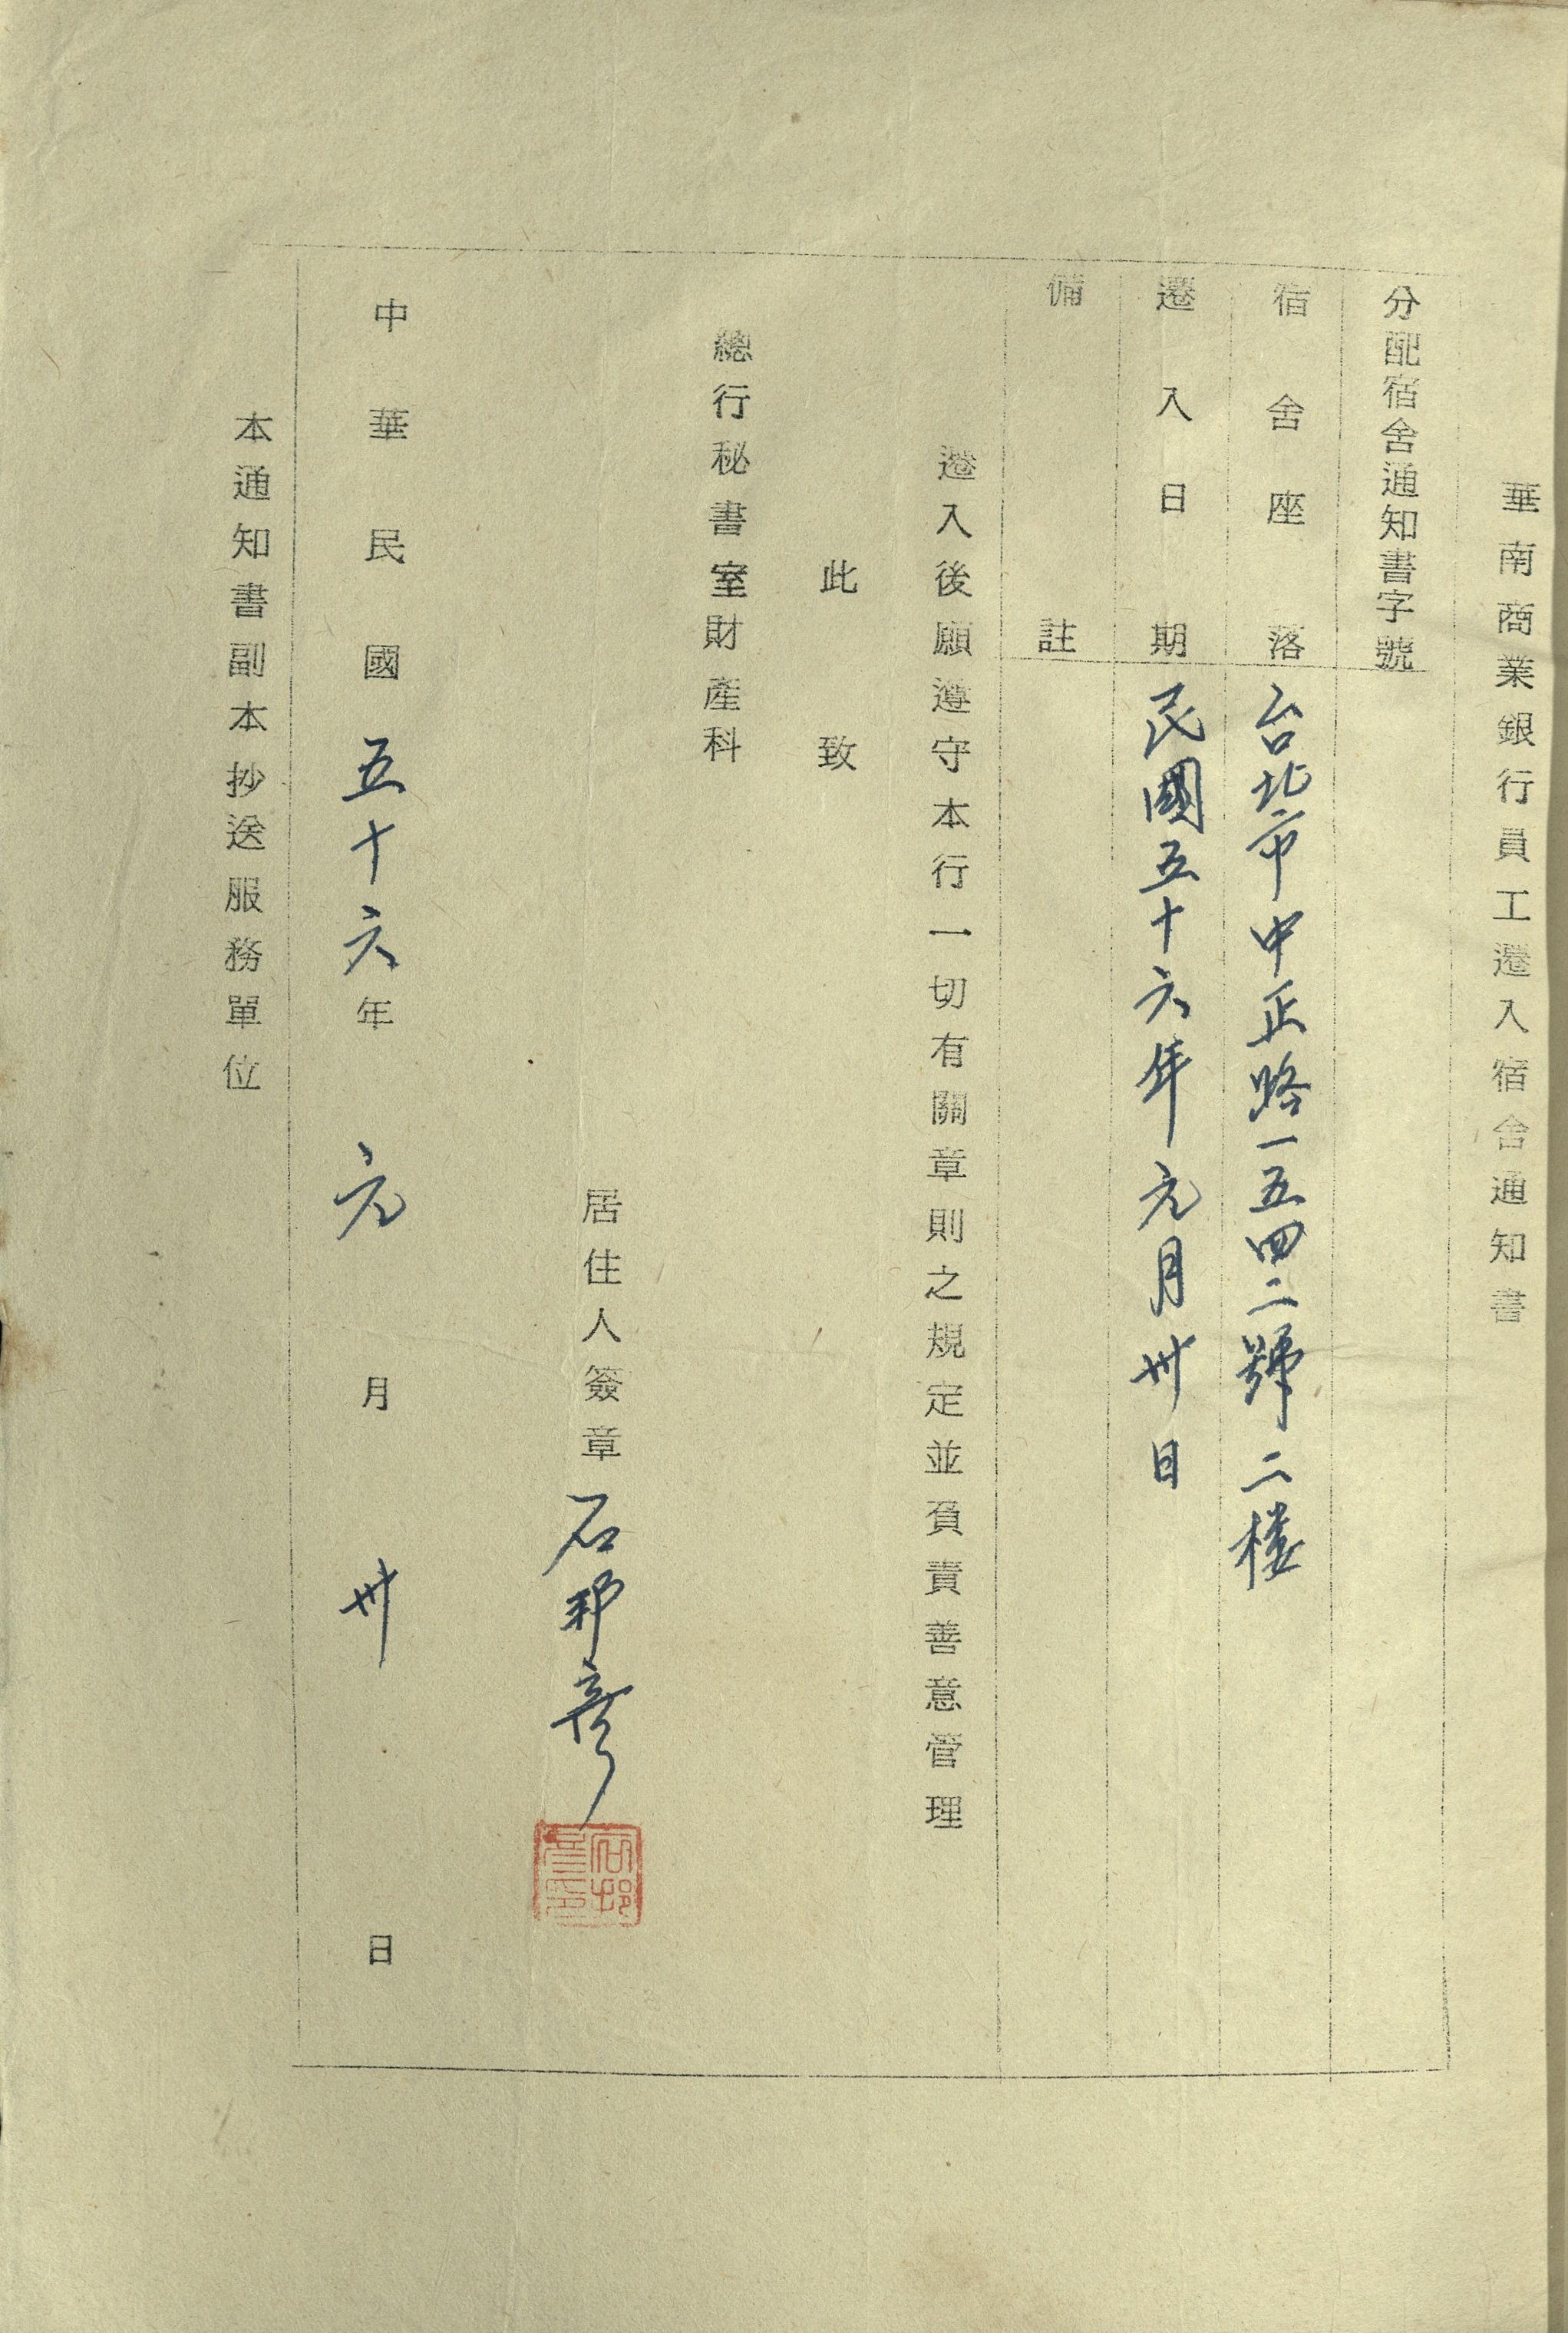 華南商業銀行員工遷入宿舍通知書
分配宿舍通知書字號
宿舍座落 台北市中正路一五四二號二楼
遷入日期 民國五十六年元月卅日
備註
遷入後願遵守本行一切有關章則之規定並負責善意管理
此致
總行秘書室財產科
居住人簽章 石邦彥
石邦彥印
中華民國五十六年元月卅日
本通知書副本抄送服務單位